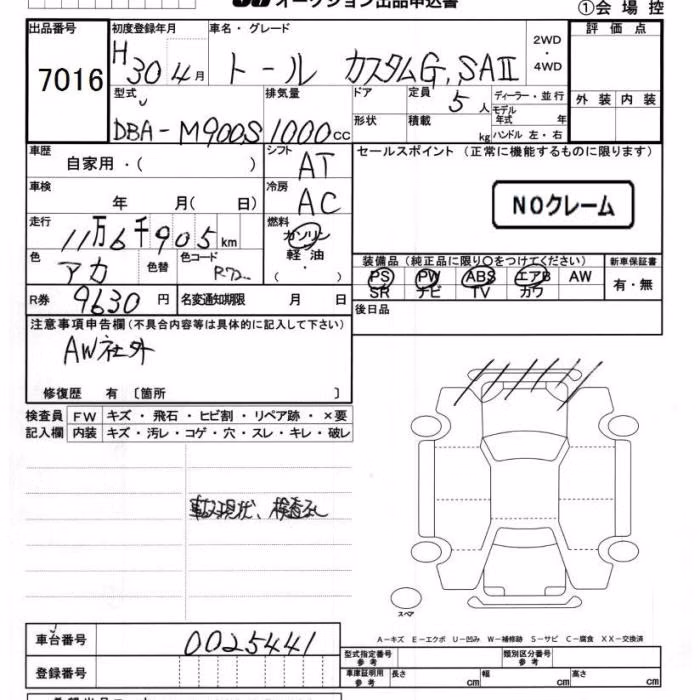 オークション出品申込書
①会場控
出品番号 初度登録年月 車名・グレード 2WD・4WD 評価点
7016 H30 4月 トール カスタムG,SAⅡ
型式 排気量 ドア 定員 5人 ディーラー・並行 外装 内装
モデル年式 年
DBA-M900S 1000cc 形状 積載 kg ハンドル 左・右
車歴 シフト セールスポイント (正常に機能するものに限ります)
自家用・( ) AT
車検 冷房
年 月( 日) AC NOクレーム
走行 燃料
11万6千905km ガソリン
色 色替 色コード 軽油 装備品 (純正品に限り○をつけてください) 新車保証書
アカ R72 ( ・ ) PS PW ABS エアB AW 有・無
SR ナビ TV カワ
R券 9630円 名変通知期限 月 日 後日品
注意事項申告欄(不具合内容等は具体的に記入して下さい)
AW社外
修復歴 有 〔箇所 〕
検査員 FW キズ・飛石・ヒビ割・リペア跡・×要
記入欄 内装 キズ・汚レ・コゲ・穴・スレ・キレ・破レ
事故現状、検査なし
スペア
A－キズ E－エクボ U－凹み W－補修跡 S－サビ C－腐食 XX－交換済
車台番号 0025441
型式指定番号 参考 類別区分番号 参考
登録番号 車庫証明用 参考 長さ cm 幅 cm 高さ cm